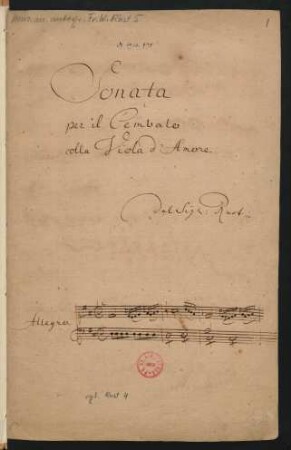 Mus. ms. autogr. Fr. W. Rust 5
1
Sonata
per il Cembalo
colla Viola d'Amore
Del Sigr: Rust
Allegro
vgl. Rust 4